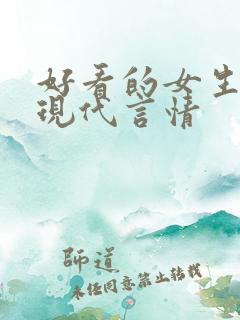 好看的女生
現代言情
師道
未经同意禁止转载